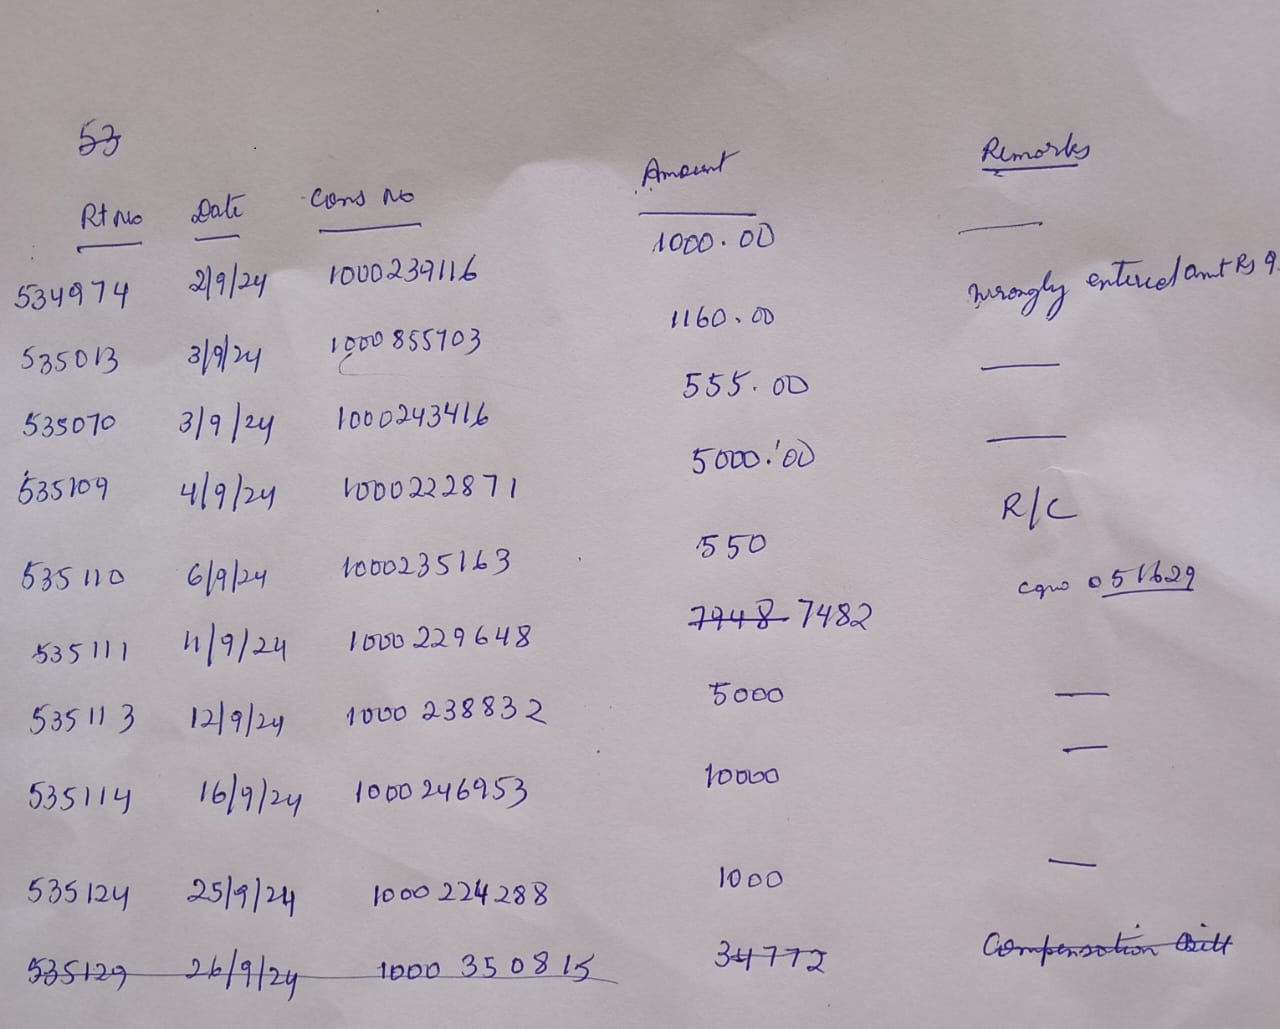 53
Rt No Date Cons No Amount Remarks
534974 2/9/24 1000239116 1000.00 —
535013 3/9/24 1000855903 1160.00 wrongly entered amt Rs 9
535070 3/9/24 1000243416 555.00 —
535109 4/9/24 1000222871 5000.00 —
535110 6/9/24 1000235163 550 R/C
535111 11/9/24 1000229648 7948 7482 051629
535113 12/9/24 1000238832 5000 —
535114 16/9/24 1000246953 10000 —
535124 25/9/24 1000224288 1000 —
535129 26/9/24 1000350815 34772 Compensation Bill